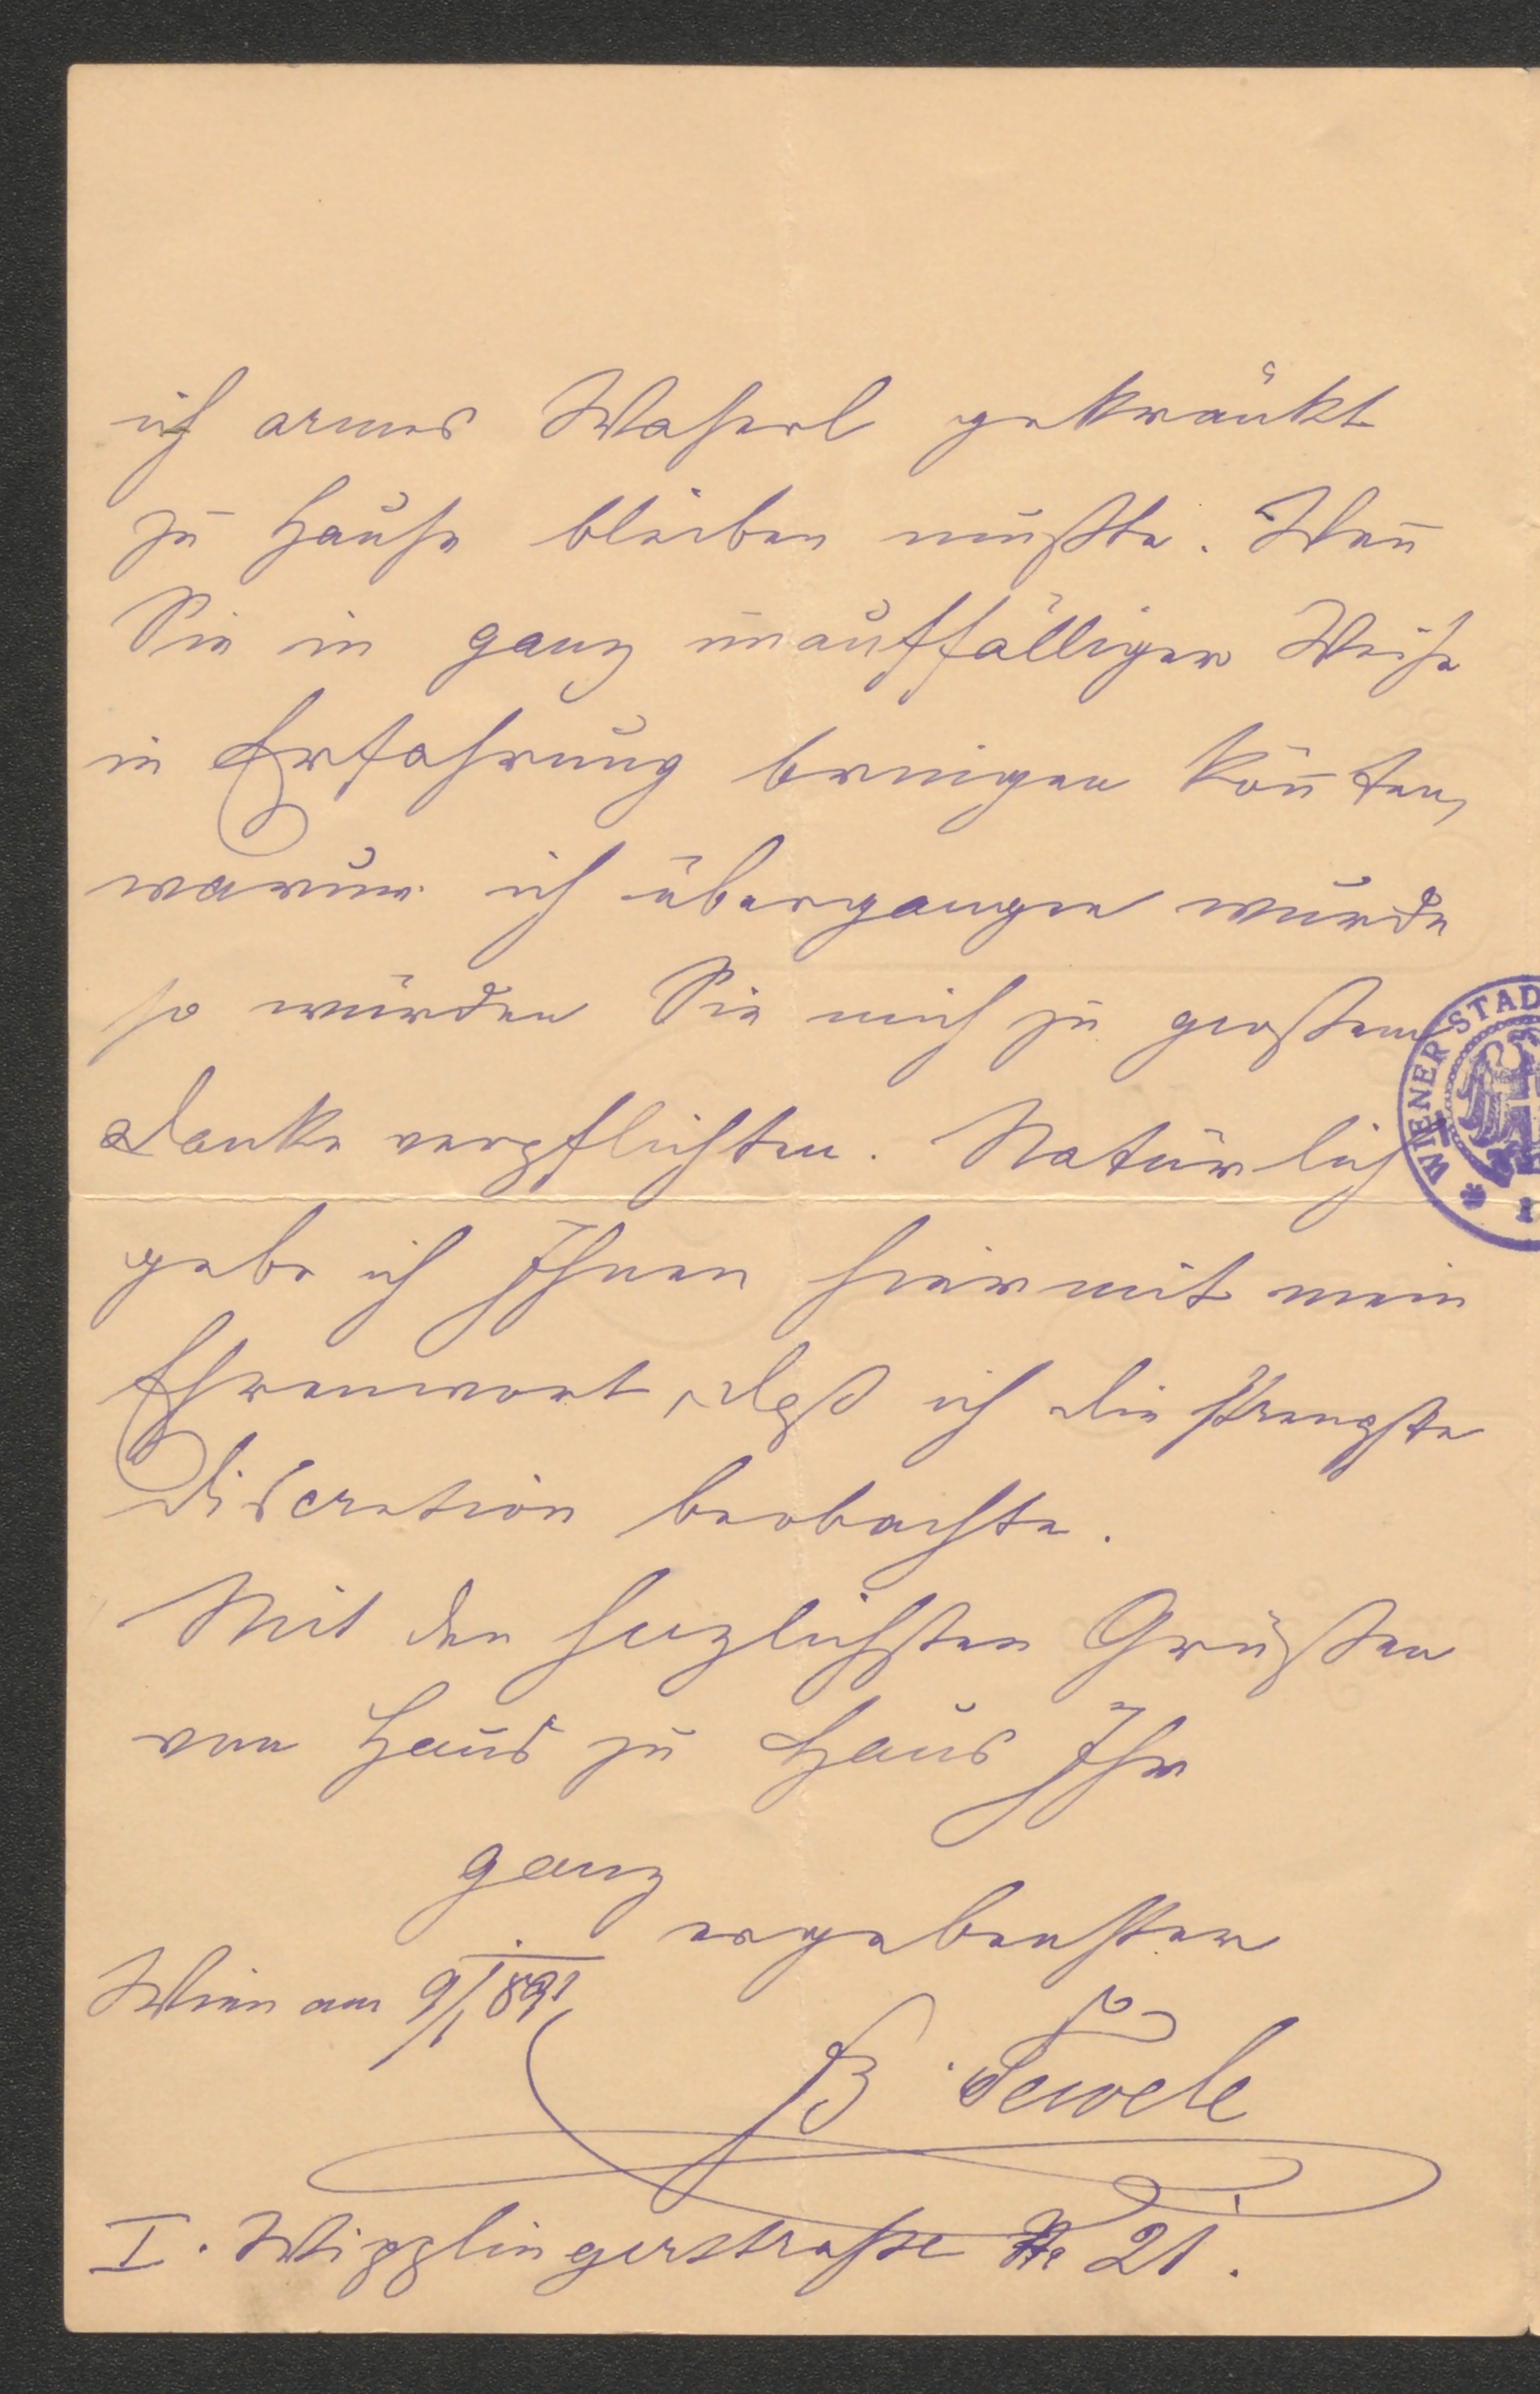 ich armes Waserl gekränkt
zu Hause bleiben mußte. Wen̄
Sie in ganz unauffälliger Weise
in Erfahrung bringen kön̄ten,
warum ich übergangen wurde
so würden Sie mich zu großem
Danke verpflichten. Natürlich
gebe ich Ihnen hiermit mein
Ehrenwort, daß ich die strengste
Discretion beobachte.
Mit den herzlichsten Grüßen
von Haus zu Haus Ihr
ganz
ergebenster
Wien am 9/1 891
Tewele
I. Wipplingerstraße № 21.
WIENER STAD